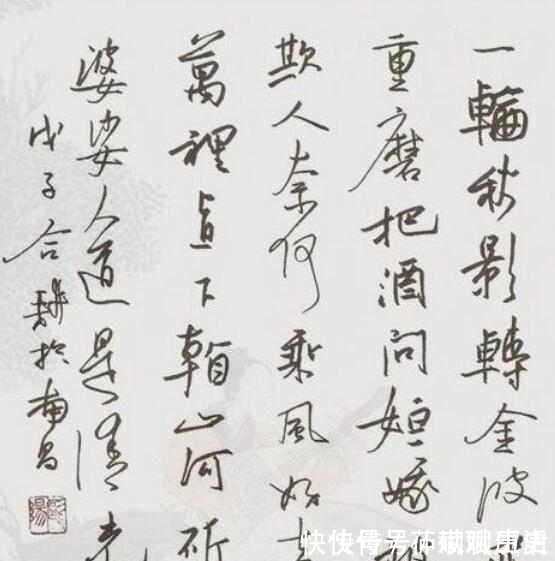 一輪秋影轉金波
重磨把酒問姮娥
欺人奈何乘風好去
萬裡直下看山河斫
婆娑人道是清光
戊子合於南昌